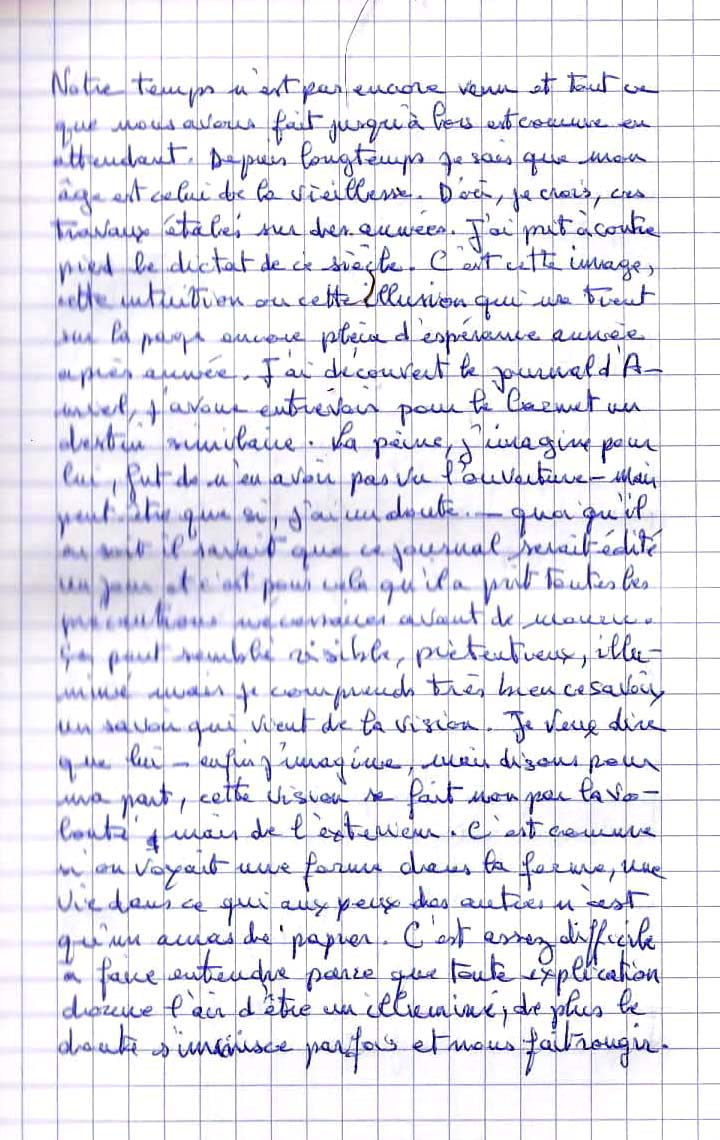 Notre temps n'est pas encore venu et tout ce
que nous avons fait jusqu'à lors est comme en
attendant. Depuis longtemps je sais que mon
âge est celui de la vieillesse. D'où, je crois, ces
travaux étalés sur des années. J'ai prit à contre
pied le dictat de ce siècle. C'est cette image,
cette intuition ou cette illusion qui me tient
sur la page encore plein d'espérance année
après année. J'ai découvert le journal d'A-
miel, j'avoue entrevoir pour le Carnet un
destin similaire. La peine, j'imagine pour
lui, fut de n'en avoir pas vu l'ouverture - Mais
peut-être que si, j'ai un doute. - quoi qu'il
en soit il savait que ce journal serait édité
un jour et c'est pour cela qu'il a prit toutes les
précautions nécessaires avant de mourir.
Ça peut semblé risible, prétentieux, illu-
miné mais je comprends très bien ce savoir,
un savoir qui vient de la vision. Je veux dire
que lui - enfin j'imagine, mais disons pour
ma part, cette vision se fait non par la vo-
lonté, mais de l'exterieur. C'est comme
si on voyait une forme dans la forme, une
vie dans ce qui aux yeux des autres n'est
qu'un amas de papier. C'est assez difficile
a faire entendre parce que toute explication
donne l'air d'être un illuminé, de plus le
doute s'immisce parfois et nous fait rougir.